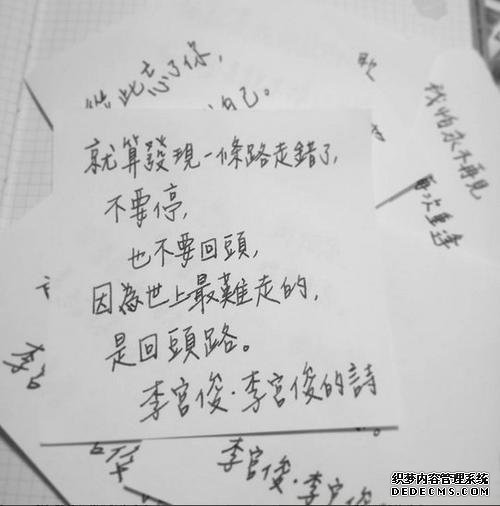 此忘了你,
自己。
我怕永不再見
再次重逢
就算發現一條路走錯了,
不要停,
也不要回頭,
因為世上最難走的,
是回頭路。
李宮俊·李宮俊的詩
李宮
李宮俊·李宮俊
织梦内容管理系统
DEDECMS.COM